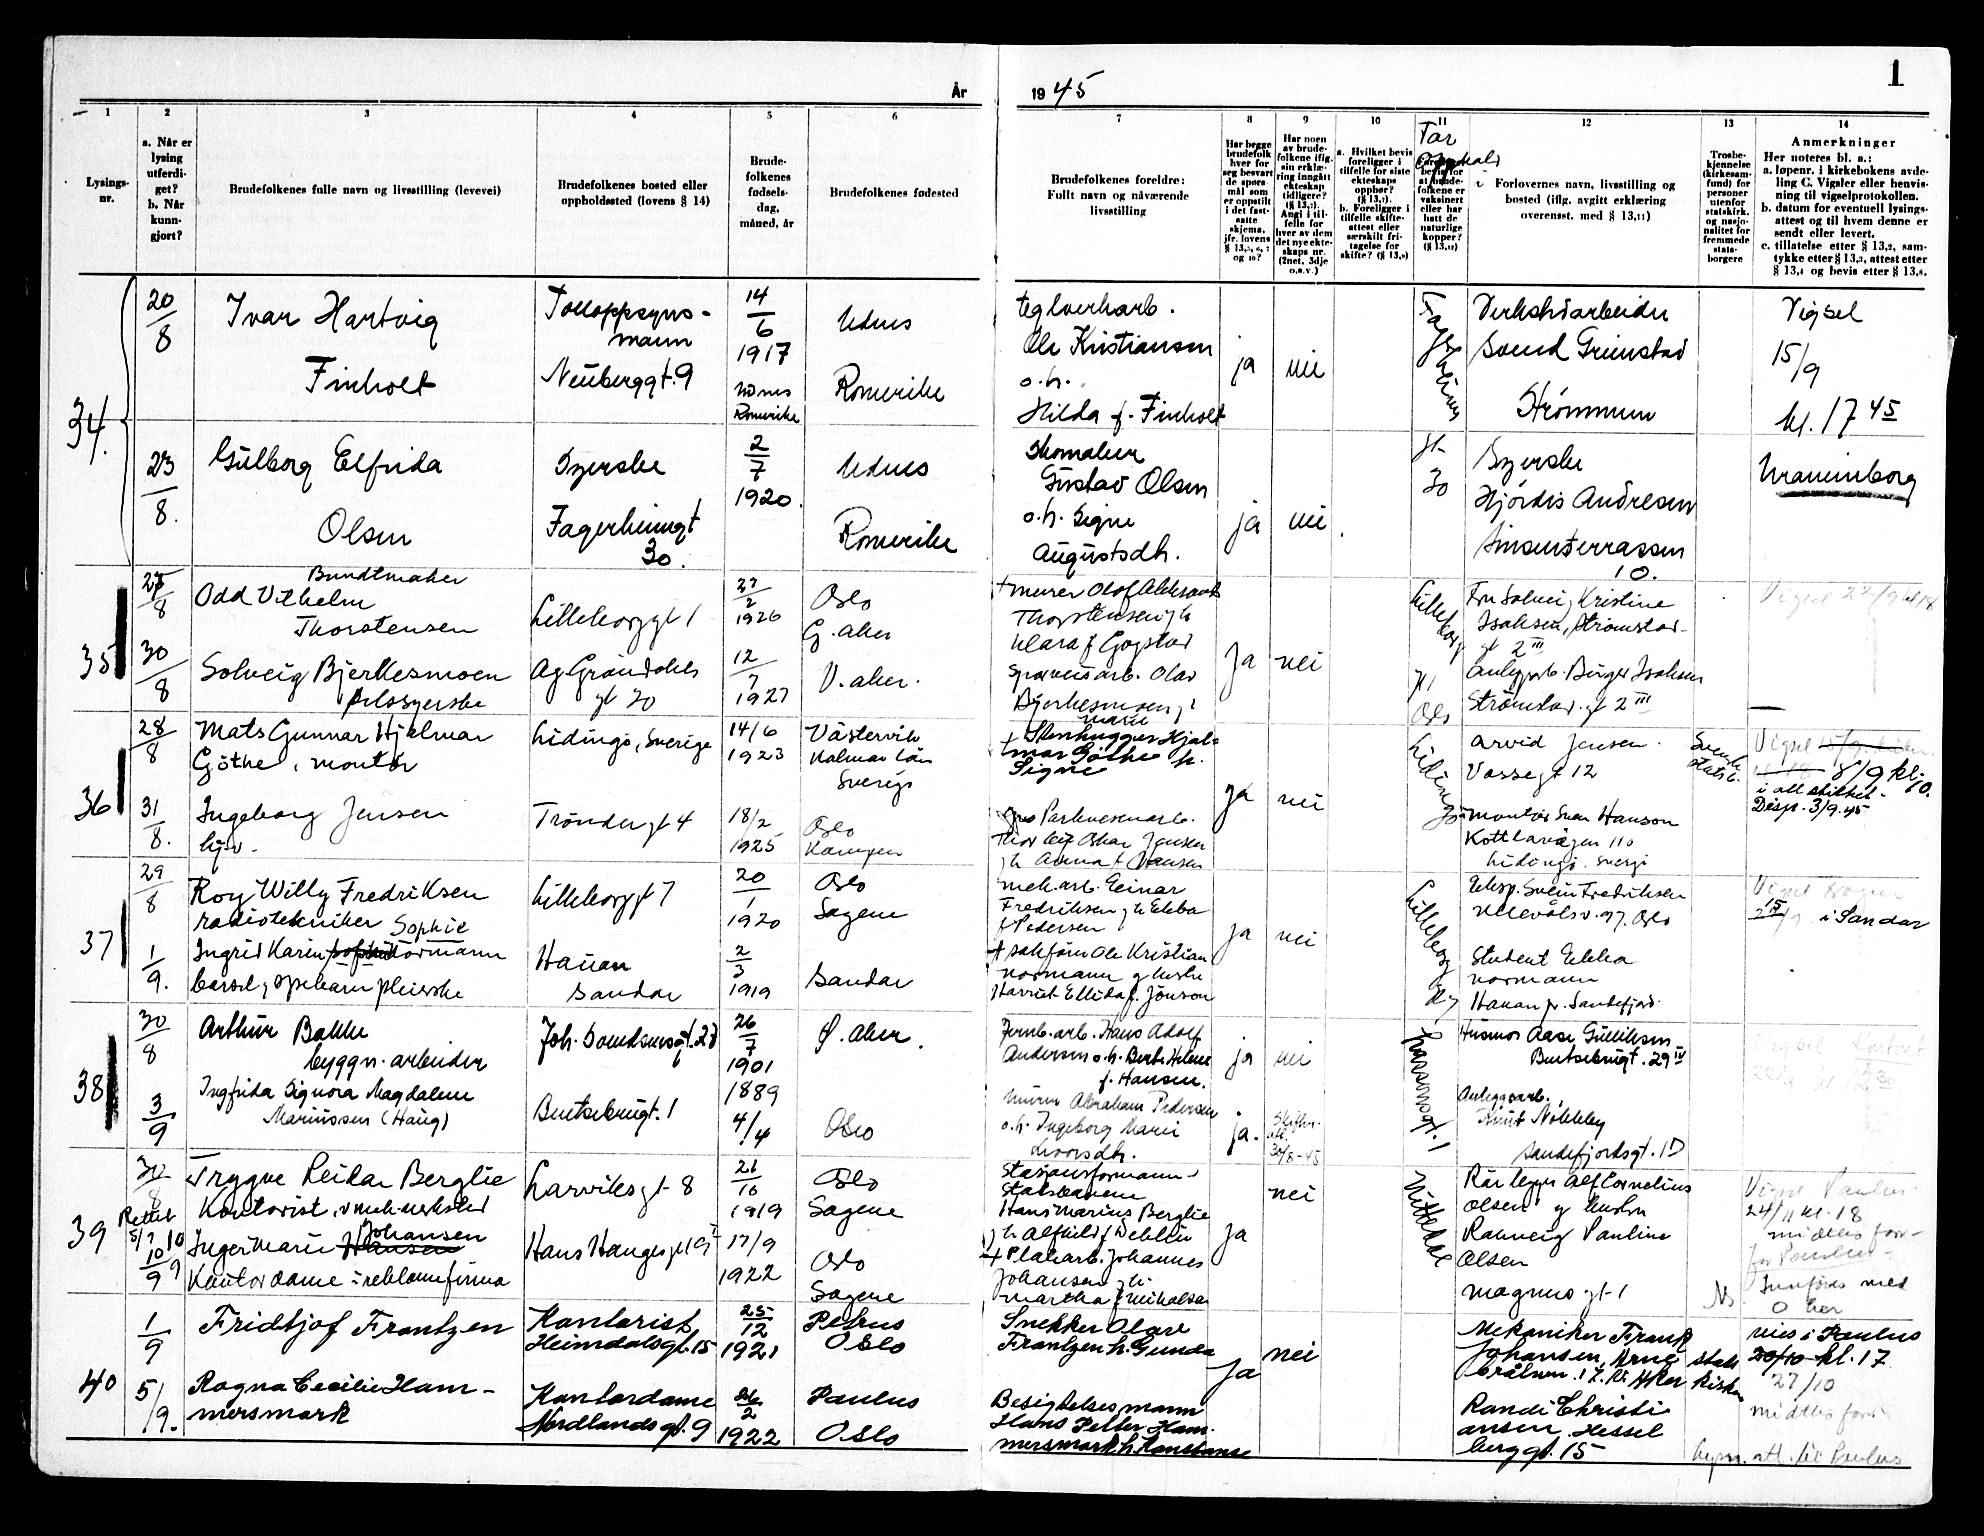 1
År
19 45
1
2
3
4
5
6
7
8
9
10
11
12
13
14
Lysings-
nr.
a. Når er
lysing
utferdi-
get?
b. Når
kunn-
gjort?
Brudefolkenes fulle navn og livsstilling (levevei)
Brudefolkenes bosted eller
oppholdssted (lovens § 14)
Brude-
folkenes
fødsels-
dag,
måned, år
Brudefolkenes fødested
Brudefolkenes foreldre:
Fullt navn og nåværende
livsstilling
Har begge
brudefolk
hver for
seg besvart
de spørs-
mål som
er oppstilt
i det fast-
satte
skjema,
jfr. lovens
Har noen
av brude-
folkene iflg.
sin erklæ-
ring inngått
ekteskap
tidligere?
Angi i til-
felle for
hver av dem
det nye ekte-
skaps nr.
(2net, 3dje
o.s.v.)
a. Hvilket bevis
foreligger i
tilfelle for siste
ekteskaps
opphør?
b. Foreligger i
tilfelle skifte-
attest eller
særskilt fri-
tagelse for
skifte? (§ 13,9)
Tar
vaksinert
eller har
hatt de
naturlige
kopper?
Forlovernes navn, livsstilling og
bosted (iflg. avgitt erklæring
overensst. med § 13,11)
Trosbe-
kjennelse
(kirkesam-
fund) for
personer
utenfor
statskirk.
og nasjo-
nalitet for
fremmede
stats-
borgere
Anmerkninger
Her noteres bl. a.:
a. løpenr. i kirkebokens avde-
ling C. Vigsler eller henvis-
ning til vigselprotokollen.
b. datum for eventuell lysings-
attest og til hvem denne er
sendt eller levert.
c. tillatelse etter § 13,2, sam-
tykke etter § 13,3, attest etter
§ 13,4 og bevis etter § 13,8.
34.
20/8
Ivar Hartvig
Finholt
Tolloppsyns-
mann
Neuberggt. 9
14/6
1917
Udnes
Romerike
Udnes
Romerike
teglverkarb.
Ole Kristiansen
o.h.
Hilda f. Finholt
ja
nei
Verkstedarbeider
Svend Grimstad
Strømmen
Vigsel
15/9
kl. 17 45
23/8.
Gulborg Elfrida
Olsen
Syerske
Fagerheimgt
30.
2/7
1920.
Udnes
Romerike
Skomaker
Gustav Olsen
o.h. Signe
Augustsdh.
ja
nei
gt.
30
Syerske
Hjördis Andresen
Sinsenterrassen
10.
Uranienborg
35
27/8
Buntmaker
Odd Vilhelm
Thorstensen
Lilleborggt 1
22/2
1926
Oslo
G. Aker
+ murer Olof Aleksand
Thorstensen g h
Klara f Gogstad
Fru Solvei Kristine
Isaksen, Strømstad-
gt 2 III
Vigsel 22/9 kl 18
30/8
Solveig Bjerkesmoen
pelssyerske
Ag Grøndahls
gt 20
12/7
1927
V. Aker.
Sporveisarb. Olav
Bjerkesmoen g h
Marie
ja
nei
Oslo
anleggsarb. Birger Isaksen
Strømstad. gt 2 III
36
28/8
Mats Gunnar Hjalmar
Göthe, montør
Lidingö, Sverige
14/6
1923
Västervik
Kalmar län
Sverige
+ Stenhugger Hjal-
mar Göthe h.
Signe
Lidingö
Arvid Jensen.
Vossegt 12
Svensk
statsb.
Vigsel
8/9 kl.
10.
i all stillhet.
Disp. 3/9.45
31/8.
Ingeborg Jensen
hj.v.
Trøndergt 4
18/2
1925
Oslo
Kampen
Parkvesenarb.
Thorleif Oskar Jensen
g h Anna f Hansen
ja
nei
montör Sven Hanson
Kottlavägen 110
Lidingö. Sverige
37
29/8
Roy Willy Fredriksen
radiotekniker
Lilleborggt 7
20/1
1920
Oslo
Sagene
mek.arb. Einar
Fredriksen g h Ebba
f Pedersen
Lilleborg
gt 7
Eksp. Svein Fredriksen
Ullevålsv. 97. Oslo
15/9 i Sandar
1/9.
Sophie
Ingrid Karin Normann
barsel, spebarnpleierske
Hauan
Sandar
2/3
1919
Sandar
+ sakfører Ole Kristian
Normann g h
Harriet Ellida f. Jönson
ja
nei
Student Ebba
Normann
Hauan pr. Sandefjord.
38
30/8
Arthur Bakke
byggn. arbeider
26/7
1901
Ø. Aker.
Jernb. arb. Hans Adolf
Andersen o.h. Berte Helene
f. Hansen.
ja
nei
Husmor Aase Gulliksen
Bentsebrugt. 29 IV
3/9
Ingfrida Signora Magdalene
Marinussen (Haug)
Bentsebrugt. 1
1889
4/4
Oslo
Murer Abraham Pedersen
o.h. Ingeborg Marie
ja.
Skifte-
att.
30/8-45
Anleggsarb.
Knut Nökleby
Sandefjordsgt. 1 D
39
30/8
Trygve Reidar Berglie
Kontorist, v mek. verksted
Larviksgt. 8
21/10
1919
Oslo
Sagene
Stasjonsformann
Statsbanene
Hans Marius Berglie
g h Alfhild f Dehlin
nei
Nittedal
Rørlegger Alf Cornelius
Olsen g
Vigsel Paulus
24/11 kl. 18
midtles for-
for Paulus
Rettet
5/10
10/9
Inger Marie Johansen
Hansen
Kontordame i reklamefirma
Hans Haugesgt 9 I
17/9
1922
Oslo
Sagene
+ Plakarb. Johannes
Johansen g h
Martha f Mikalsen
ja
Ranveig Pauline
Olsen
Magnus gt 1
40
1/9
Fridtjof Frantzen
Kontorist
Heimdalsgt. 15
25/12
1921
Petrus
Oslo
Snekker Olave
Frantzen h. Gunda
nei
Mekaniker Frank
Johansen, Arne
stats
kirken
vies i Paulus
20/10 kl. 17
27/10
5/9.
Ragna Cecilie Ham-
mersmark
Kontordame
Nordlandsgt. 9
26/2
1922
Paulus
Oslo
Besigtelsesmann
Hans Petter Ham-
mersmark h. Konstanse
ja
Randi Christi
ansen, Hessel
berg gt. 15
att. til Paulus